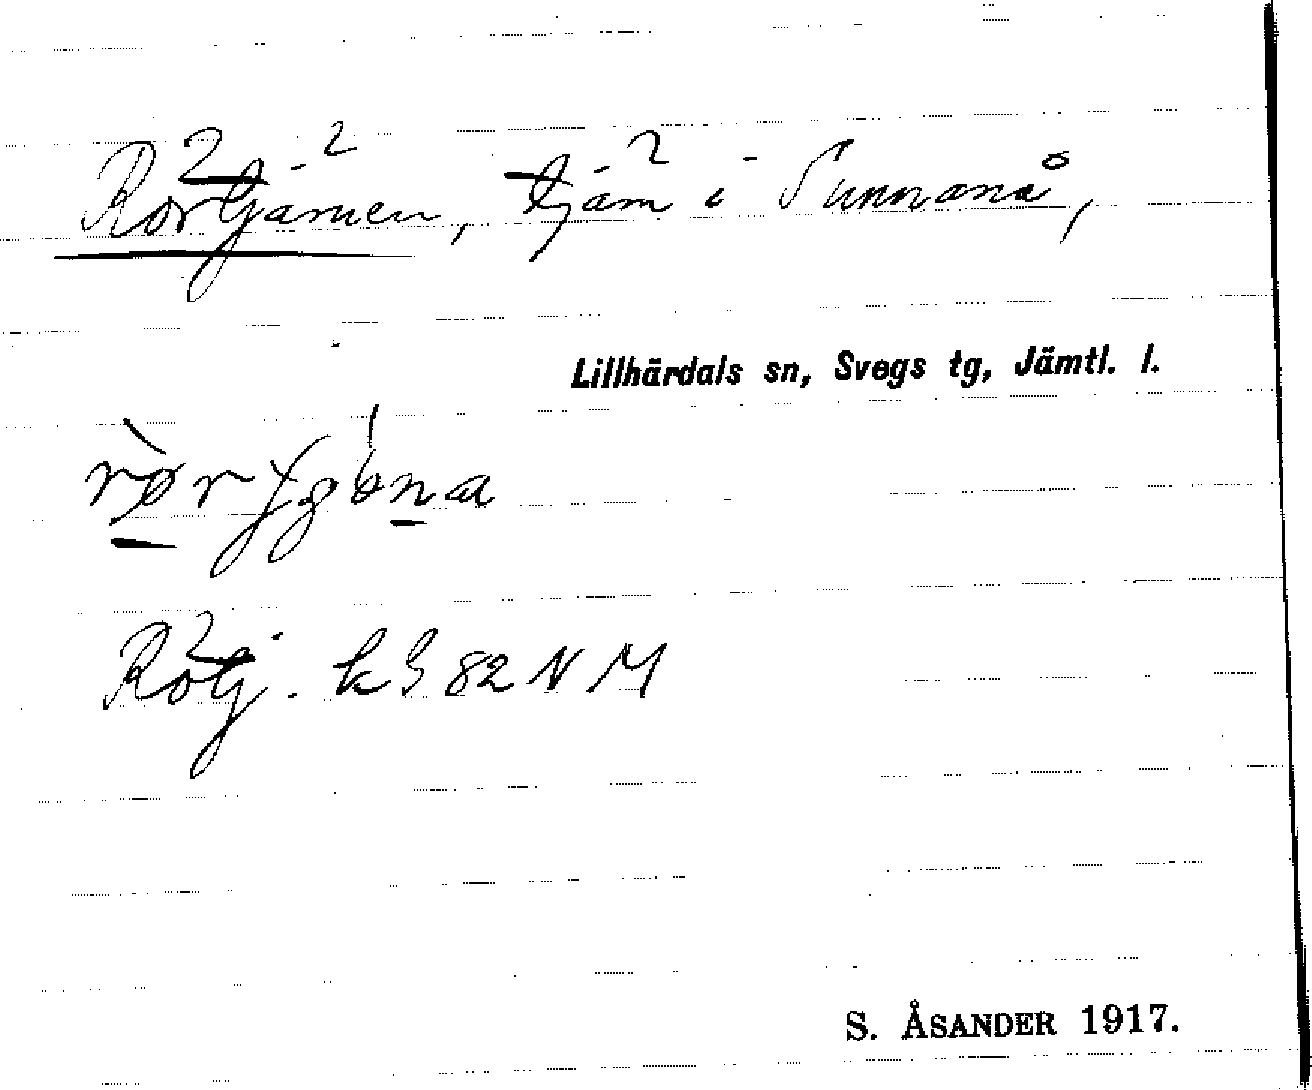 Rörtjärnen, tjärn i Sunnanå,
Lillhärdals sn, Svegs tg, Jämtl. l.
Rötj. k S 82 N M
S. ÅSANDER 1917.